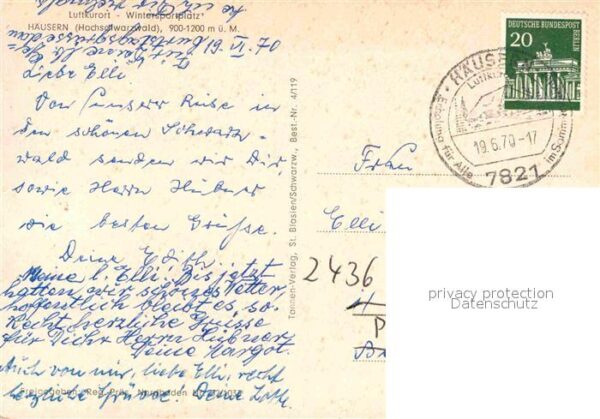 Luftkurort - Wintersportplatz
HÄUSERN (Hochschwarzwald), 900-1200 m ü. M.
19. VI. 70
Liebe Elli!
Von unserer Reise in
den schönen Schwarz-
wald senden wir Dir
sowie Herrn Hübner
die besten Grüße.
Deine Edith.
Meine l. Elli! Bis jetzt
hatten wir schönes Wetter
hoffentlich bleibt es so.
Recht herzliche Grüsse
für Dich u. Herrn Hübner
Deine Margot.
Auch von mir, liebe Elli, recht
herzliche Grüsse! Deine
Freigegeben Reg. Präs. Nordbaden
Tannen-Verlag, St. Blasien/Schwarzw. Best.-Nr. 4/119
DEUTSCHE BUNDESPOST
BERLIN
20
HÄUSERN
Erholung für Alle im Sommer
19.6.70-17
7821
Frau
Elli
2436
privacy protection
Datenschutz